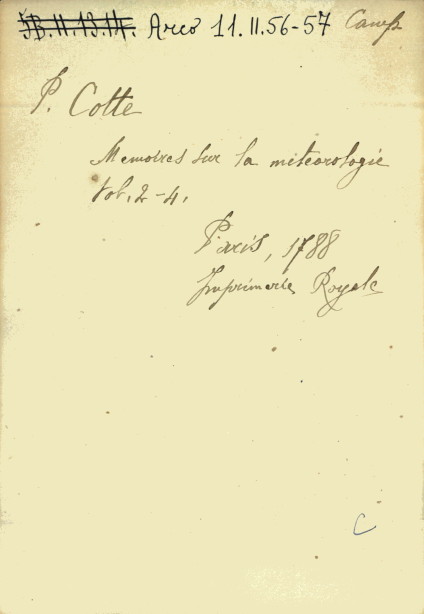 5B.II.13.14. Arco 11.II.56-57
P. Cotte
Memoires sur la méteorologie
Vol. 2-4.
Paris, 1788
Imprimerie Royale
C